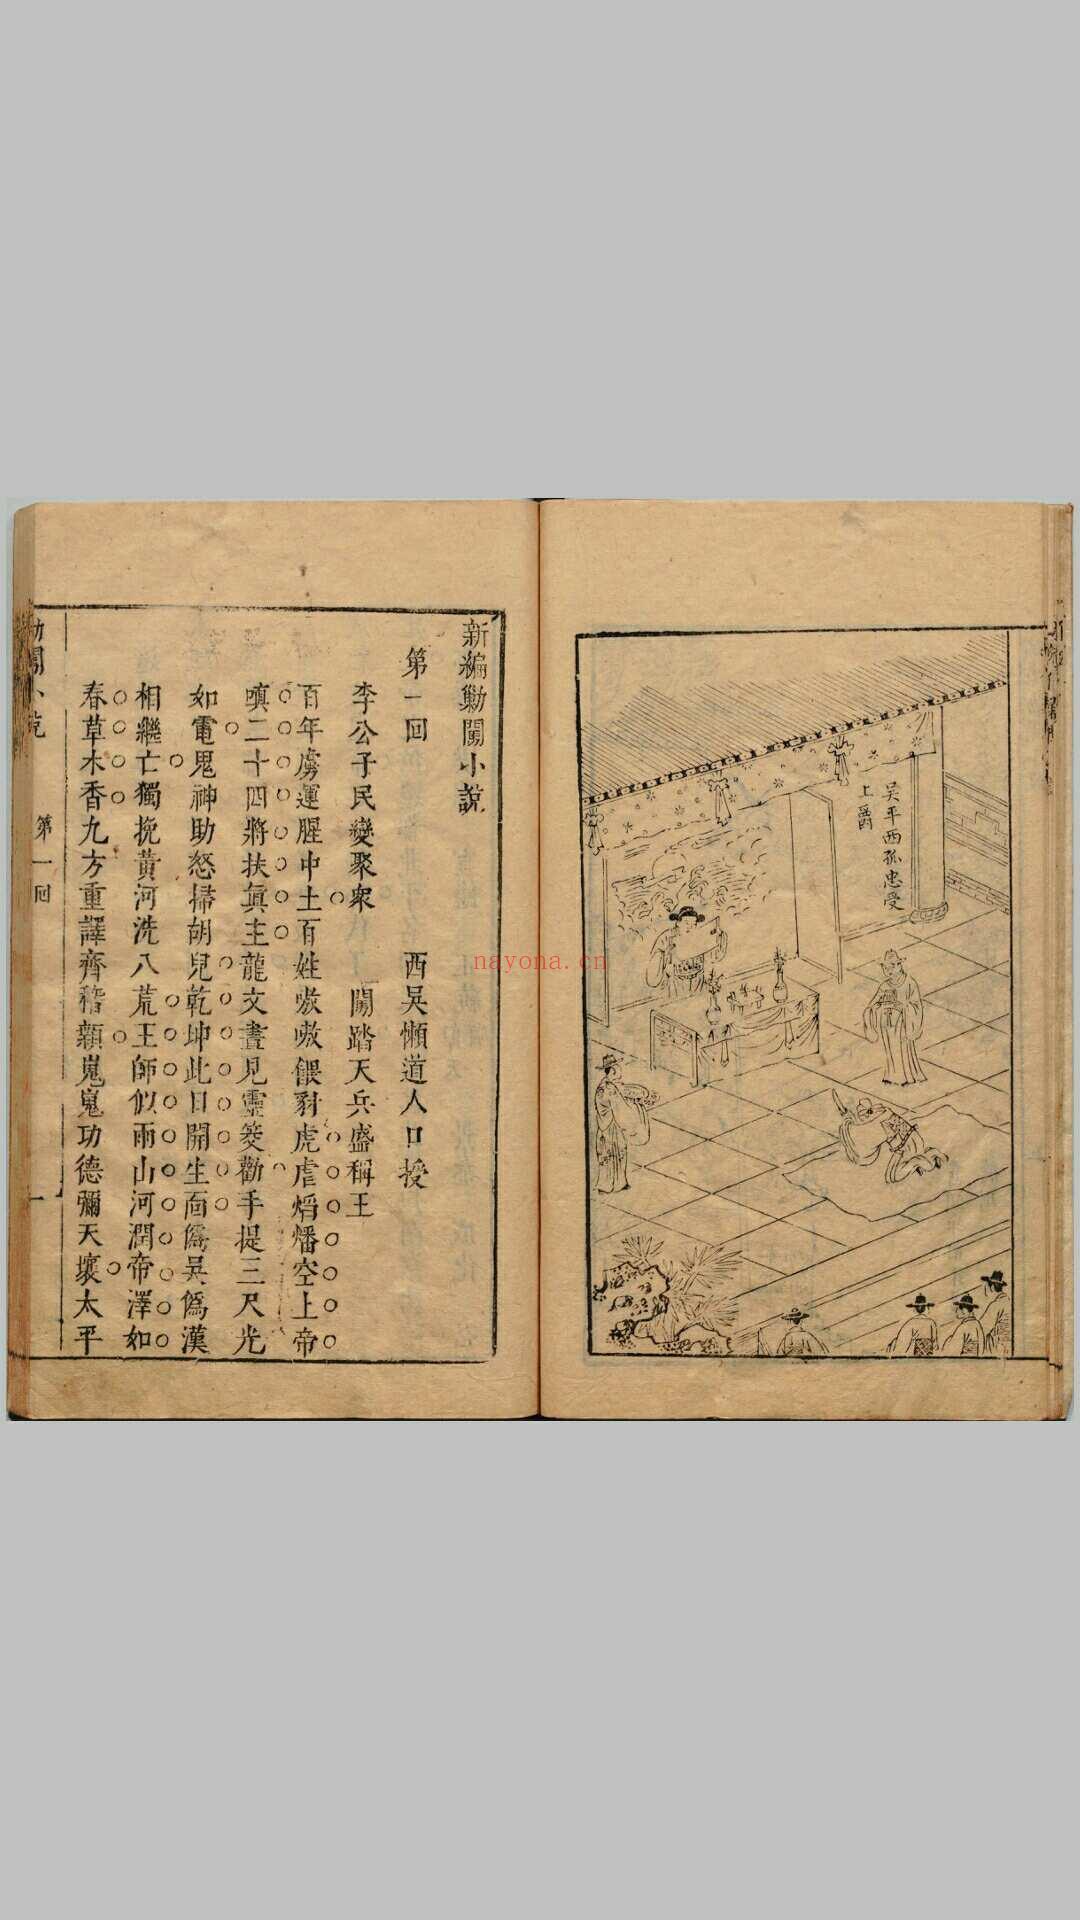 吳平西孤忠受
上爵
新編勦闖小說
第一回 西吳懶道人口授
李公子民變聚衆 闖踏天兵盛稱王
百年虜運腥中土百姓嗷嗷餵豺虎虐熖燔空上帝
嗔二十四將扶眞主龍文晝見靈夌勸手提三尺光
如電鬼神助怒掃胡兒乾坤此日開生面爲吳爲漢
相繼亡獨挽黃河洗八荒王師似雨山河潤帝澤如
春草木香九方重譯齊稽顙嵬嵬功德彌天壤太平
闖小說 第一回 一
nayona.cn